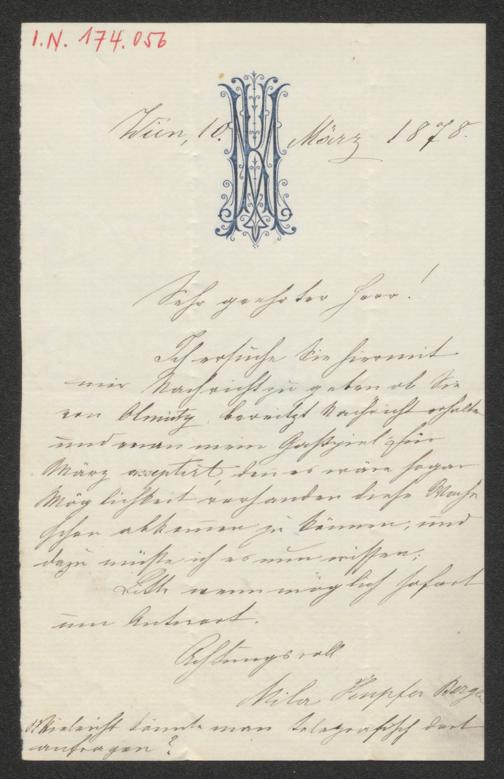 I.N. 174.056
Wien, 10. März 1878.
Sehr geehrter Herr!
Ich ersuche Sie hiermit
mir Nachricht zu geben ob Sie
von Olmütz bereitzt Nachricht erhalten
und man mein Gastspiel für
März acceptirt, den es wäre sogar
Möglichkeit vorhanden diese Woche
schon abkommen zu können, und
dazu müßte ich es nun wissen;
Bitte wenn möglich sofort
um Antwort.
Achtungsvoll
Mila Kupfer Berger
Vieleicht könnte man telegrafisch dort
anfragen?